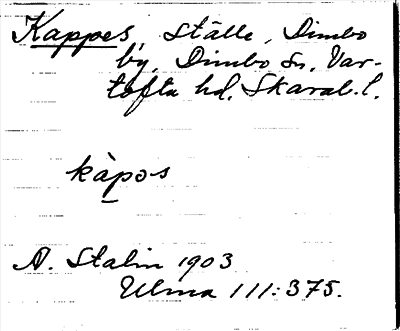 Kappes, Ställe, Dimbo
by, Dimbo sn, Var-
tofta hd. Skarab.l.
kàpǝs
A. Stalin 1903
Ulma 111:375.